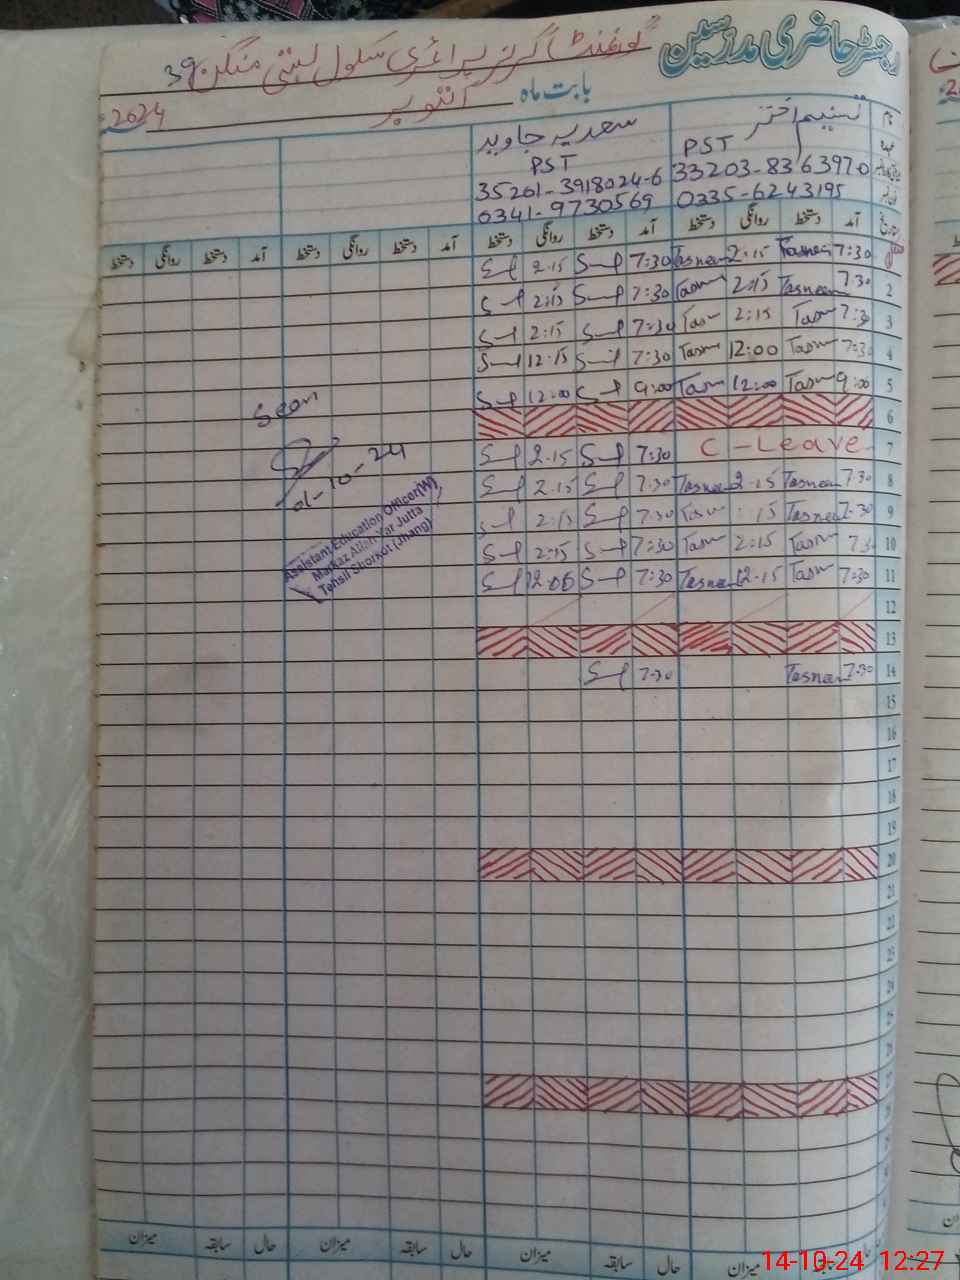 رجسٹر حاضری مدرسین گورنمنٹ گرلز پرائمری سکول بستی منگن 39
بابت ماہ اکتوبر 2024
نام تسنیم اختر سعدیہ جاوید
PST PST
33203-8363970 35201-3918024-6
0335-6243195 0341-9730569
تاریخ آمد دستخط روانگی دستخط آمد دستخط روانگی دستخط آمد دستخط روانگی دستخط آمد دستخط روانگی دستخط
7:30 Tasneem 2:15 Tasneem 7:30 2.15
2 7.30 Tasneem 2:15 Tasm 7:30 2:15
3 7:30 Tasm 2:15 Tasm 7:30 2:15
4 7:30 Tasm 12:00 Tasm 7:30 12.15
5 9:00 Tasm 12:00 Tasm 9:00 12:00
6
7 C-Leave 7:30 2.15
8 7.30 Tasneem 2.15 Tasneem 7.30 2.15
9 7.30 Tasneem :15 Tasm 7.30 2:15
10 7:3 Tasm 2:15 Tasm 7:30 2:15
11 7:30 Tasm 12.15 Tasneem 7:30 12.00
12
13
14 7.30 Tasneem 7.30
15
16
17
18
19
20
21
22
23
24
25
26
27
28
Seen
01-10-24
Assistant Education Officer(W)
Markaz Allah Yar Jutta
Tehsil Shorkot (Jhang)
حال سابقہ میزان حال سابقہ میزان حال سابقہ میزان میزان
14-10-24 12:27